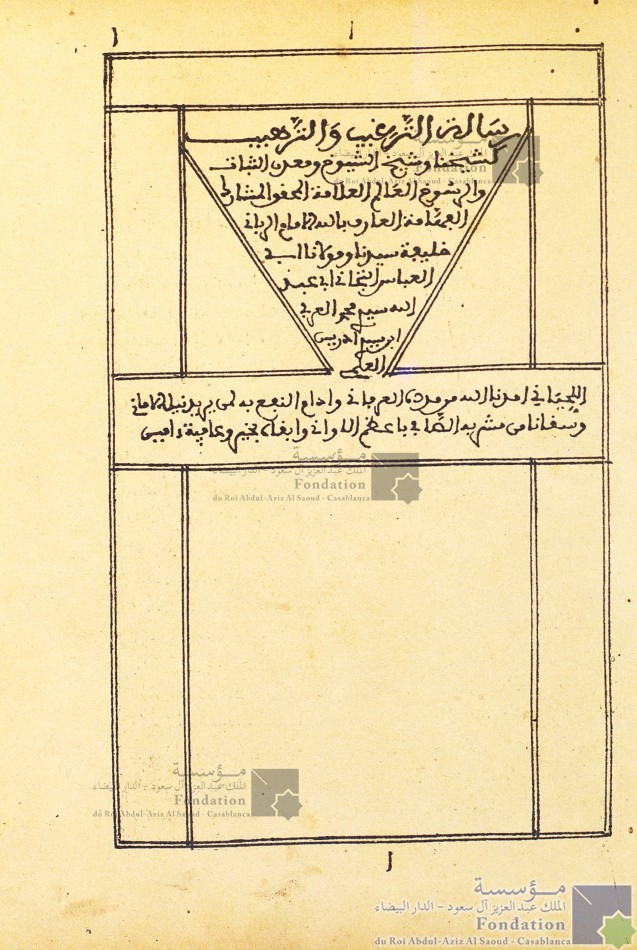 رسالة الترغيب والترهيب
لشيخنا وشيخ الشيوخ ومعدن الثبات
والرسوخ العالم العلامة المحقق المشارك
الفهامة العارف بالله الإمام الرباني
خليفة سيدنا ومولانا ابي
العباس التجاني ابي عبد
الله سيدي محمد العربي
ابن سيدي ادريس
العلمي
اللحياني امدنا الله من مدده العرفاني وادام النفع به لمن يريد نيل الاماني
وسقانا من مشربه الصافي باعظم الاواني وابقاه بخير وعافية ءاميــن
مؤسسة
الملك عبد العزيز آل سعود - الدار البيضاء
Fondation
du Roi Abdul-Aziz Al Saoud - Casablanca
مؤسسة
الملك عبد العزيز آل سعود - الدار البيضاء
Fondation
du Roi Abdul-Aziz Al Saoud - Casablanca
مؤسسة
الملك عبد العزيز آل سعود - الدار البيضاء
Fondation
du Roi Abdul-Aziz Al Saoud - Casablanca